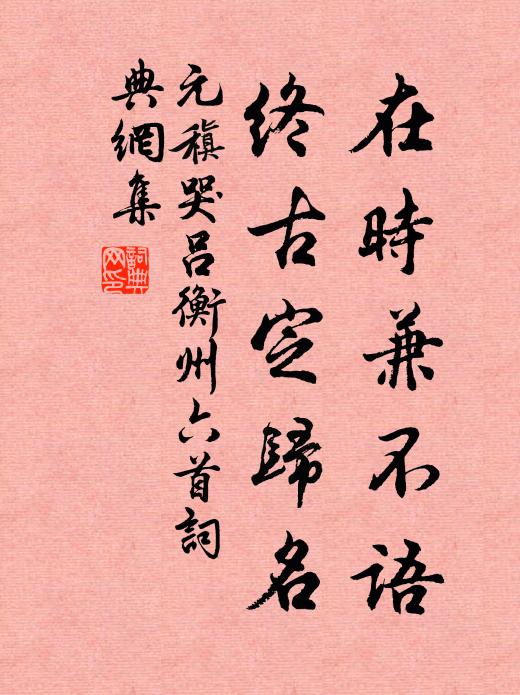 在時兼不語
終古定歸名
元稹哭呂衡州六首詞
典網集
詞典
网印